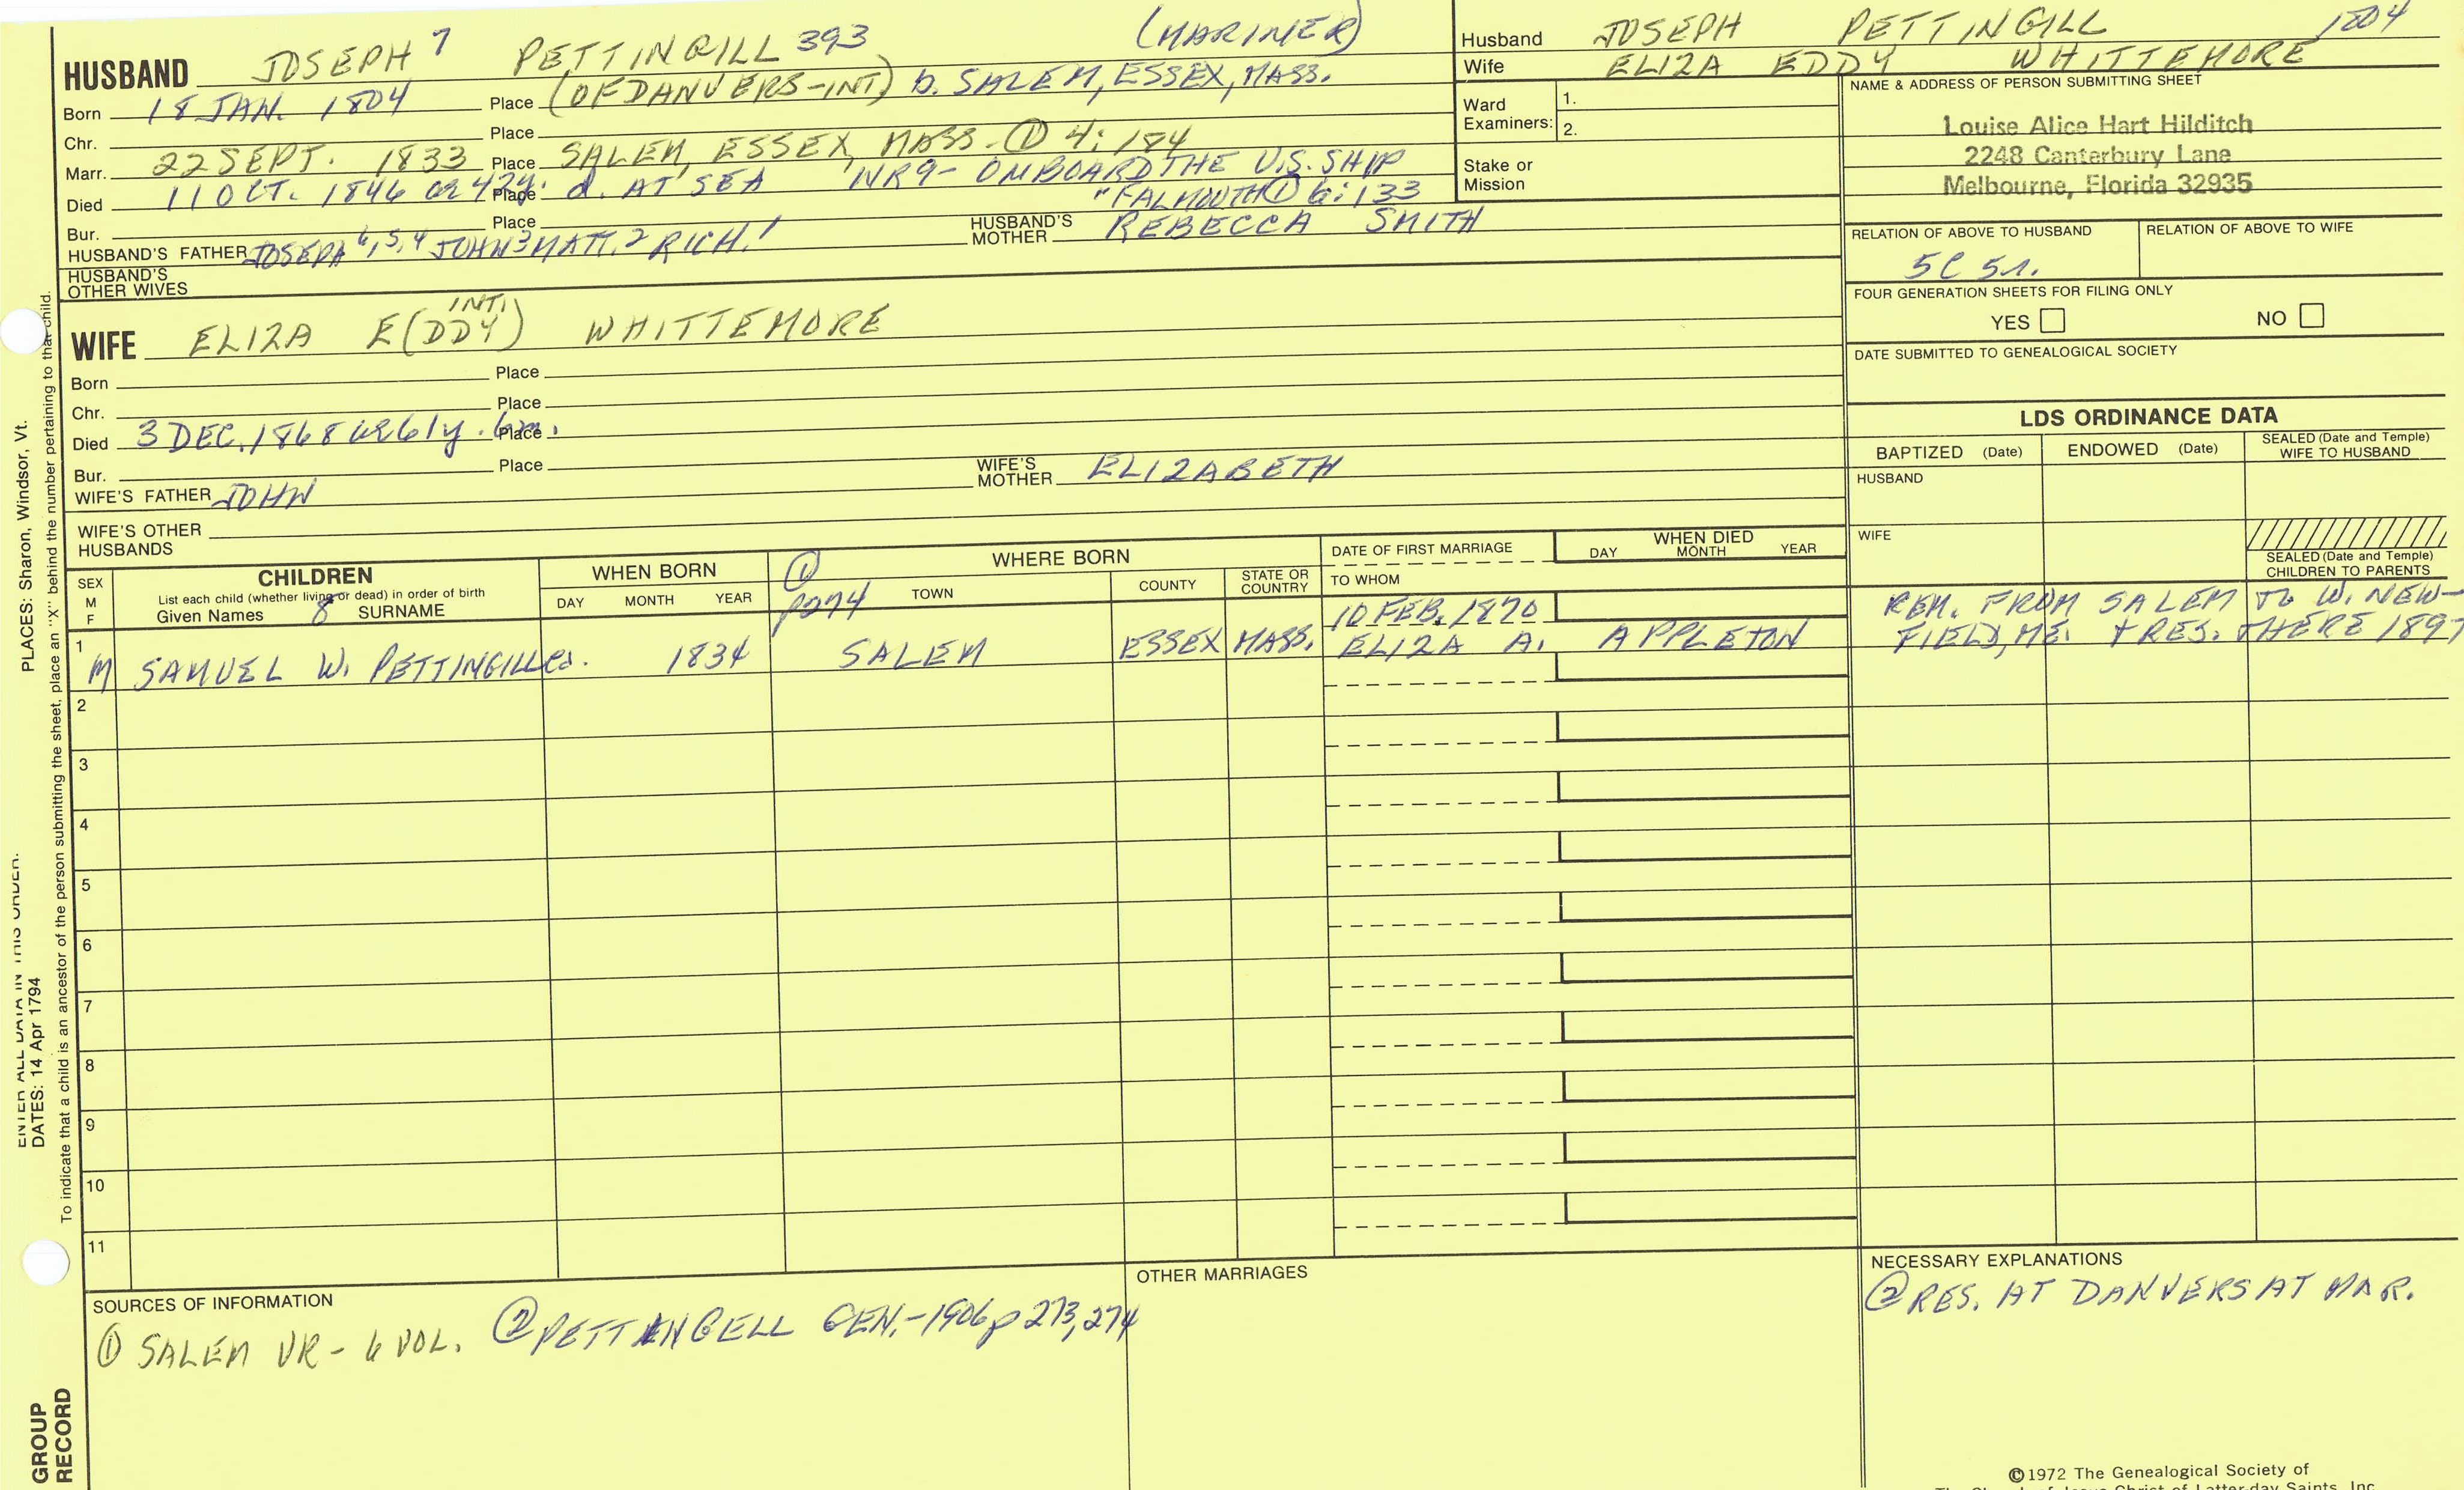 HUSBAND JOSEPH 7 PETTINGILL 393 (MARINER)
Born 18 JAN. 1804 Place (OF DANVERS-INT) b. SALEM, ESSEX, MASS.
Chr. Place
Marr. 22 SEPT. 1833 Place SALEM, ESSEX, MASS. ① 4: 184
Died 11 OCT. 1846 ae 42y. Place d. AT SEA NR9- ONBOARD THE U.S. SHIP
"FALMOUTH ① 6: 133
Bur. Place
HUSBAND'S FATHER JOSEPH 6,5,4 JOHN 3 MATT. 2 RICH. 1 HUSBAND'S MOTHER REBECCA SMITH
HUSBAND'S OTHER WIVES
INT.
WIFE ELIZA E(DDY) WHITTEMORE
Born Place
Chr. Place
Died 3 DEC. 1868 ae 61y. 6m. Place
Bur. Place
WIFE'S FATHER JOHN WIFE'S MOTHER ELIZABETH
WIFE'S OTHER HUSBANDS
Husband JOSEPH PETTINGILL 1804
Wife ELIZA EDDY WHITTEMORE
Ward Examiners: 1.
2.
Stake or Mission
NAME & ADDRESS OF PERSON SUBMITTING SHEET
Louise Alice Hart Hilditch
2248 Canterbury Lane
Melbourne, Florida 32935
RELATION OF ABOVE TO HUSBAND RELATION OF ABOVE TO WIFE
5C 5r.
FOUR GENERATION SHEETS FOR FILING ONLY
YES NO
DATE SUBMITTED TO GENEALOGICAL SOCIETY
LDS ORDINANCE DATA
BAPTIZED (Date) ENDOWED (Date) SEALED (Date and Temple) WIFE TO HUSBAND
HUSBAND
WIFE
SEALED (Date and Temple) CHILDREN TO PARENTS
SEX M F
CHILDREN
List each child (whether living or dead) in order of birth
Given Names 8 SURNAME
WHEN BORN
DAY MONTH YEAR
① p274
WHERE BORN
TOWN COUNTY STATE OR COUNTRY
DATE OF FIRST MARRIAGE
TO WHOM
WHEN DIED
DAY MONTH YEAR
1 10 FEB. 1870 REM. FROM SALEM TO W. NEW-
M SAMUEL W. PETTINGILL ca. 1834 SALEM ESSEX MASS. ELIZA A. APPLETON FIELD, ME. + RES. THERE 1897
2
3
4
5
6
7
8
9
10
11
SOURCES OF INFORMATION
① SALEM VR- 6 VOL. ② PETTINGELL GEN.-1906 p 273, 274
OTHER MARRIAGES
NECESSARY EXPLANATIONS
② RES. AT DANVERS AT MAR.
©1972 The Genealogical Society of
The Church of Jesus Christ of Latter-day Saints, Inc.
PLACES: Sharon, Windsor, Vt.
ENTER ALL DATA IN THIS ORDER:
DATES: 14 Apr 1794
To indicate that a child is an ancestor of the person submitting the sheet, place an "X" behind the number pertaining to that child.
GROUP
RECORD